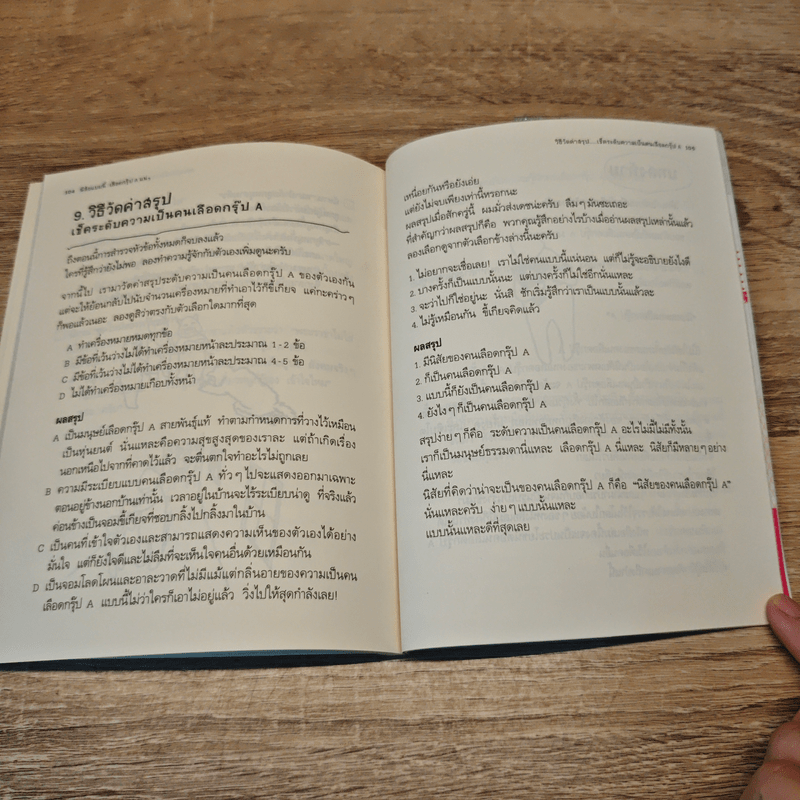 9. วิธีวัดค่าสรุป
เช็คระดับความเป็นคนเลือดกรุ๊ป A
ถึงตอนนี้การสำรวจหัวข้อทั้งหมดก็จบลงแล้ว
ใครที่รู้สึกว่ายังไม่พอ ลองทำความรู้จักกับตัวเองเพิ่มดูนะครับ
จากนี้ไป เรามาวัดค่าสรุประดับความเป็นคนเลือดกรุ๊ป A ของตัวเองกัน
แต่จะให้ย้อนกลับไปนับจำนวนเครื่องหมายที่ทำเอาไว้ก็ขี้เกียจ แค่กะคร่าวๆ
ก็พอแล้วเนอะ ลองดูสิว่าตรงกับตัวเลือกใดมากที่สุด
A ทำเครื่องหมายหมดทุกข้อ
B มีข้อที่เว้นว่างไม่ได้ทำเครื่องหมายหน้าละประมาณ 1-2 ข้อ
C มีข้อที่เว้นว่างไม่ได้ทำเครื่องหมายหน้าละประมาณ 4-5 ข้อ
D ไม่ได้ทำเครื่องหมายเกือบทั้งหน้า
ผลสรุป
A เป็นมนุษย์เลือดกรุ๊ป A สายพันธุ์แท้ ทำตามกำหนดการที่วางไว้เหมือน
เป็นหุ่นยนต์ นั่นแหละคือความสุขสูงสุดของเราละ แต่ถ้าเกิดเรื่อง
นอกเหนือไปจากที่คาดไว้แล้ว จะตื่นตกใจทำอะไรไม่ถูกเลย
B ความมีระเบียบแบบคนเลือดกรุ๊ป A ทั่วๆ ไปจะแสดงออกมาเฉพาะ
ตอนอยู่ข้างนอกบ้านเท่านั้น เวลาอยู่ในบ้านจะไร้ระเบียบน่าดู ที่จริงแล้ว
ค่อนข้างเป็นจอมขี้เกียจที่ชอบกลิ้งไปกลิ้งมาในบ้าน
C เป็นคนที่เข้าใจตัวเองและสามารถแสดงความเห็นของตัวเองได้อย่าง
มั่นใจ แต่ก็ยังใจดีและไม่ลืมที่จะเห็นใจคนอื่นด้วยเหมือนกัน
D เป็นจอมโลดโผนและอาละวาดที่ไม่มีแม้แต่กลิ่นอายของความเป็นคน
เลือดกรุ๊ป A แบบนี้ไม่ว่าใครก็เอาไม่อยู่แล้ว วิ่งไปให้สุดกำลังเลย!
วิธีวัดค่าสรุป... เช็คระดับความเป็นคนเลือดกรุ๊ป A
เหนื่อยกันหรือยังเอ่ย
แต่ยังไม่จบเพียงเท่านี้หรอกนะ
ผลสรุปเมื่อสักครู่นี้ ผมมั่วส่งเดชน่ะครับ ลืมๆ มันซะเถอะ
ที่สำคัญกว่าผลสรุปก็คือ พวกคุณรู้สึกอย่างไรบ้างเมื่ออ่านผลสรุปเหล่านั้นแล้ว
ลองเลือกดูจากตัวเลือกข้างล่างนี้นะครับ
1. ไม่อยากจะเชื่อเลย! เราไม่ใช่คนแบบนี้แน่นอน แต่ก็ไม่รู้จะอธิบายยังไงดี
2. บางครั้งก็เป็นแบบนั้นนะ แต่บางครั้งก็ไม่ใช่อีกนั่นแหละ
3. จะว่าไปก็ใช่อยู่นะ นั่นสิ ชักเริ่มรู้สึกว่าเราเป็นแบบนั้นแล้วละ
4. ไม่รู้เหมือนกัน ขี้เกียจคิดแล้ว
ผลสรุป
1. มีนิสัยของคนเลือดกรุ๊ป A
2. ก็เป็นคนเลือดกรุ๊ป A
3. แบบนี้ก็ยังเป็นคนเลือดกรุ๊ป A
4. ยังไงๆ ก็เป็นคนเลือดกรุ๊ป A
สรุปง่ายๆ ก็คือ ระดับความเป็นคนเลือดกรุ๊ป A อะไรไม่มี้ไม่มีทั้งนั้น
เราก็เป็นมนุษย์ธรรมดานี่แหละ เลือดกรุ๊ป A นี่แหละ นิสัยก็มีหลายๆ อย่าง
นี่แหละ
นิสัยที่คิดว่าน่าจะเป็นของคนเลือดกรุ๊ป A ก็คือ "นิสัยของคนเลือดกรุ๊ป A"
นั่นแหละครับ ง่ายๆ แบบนั้นแหละ
แบบนั้นแหละดีที่สุดเลย